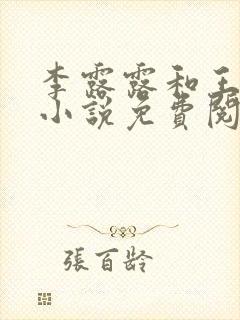 李露露和王
小說免費閱
張百齡